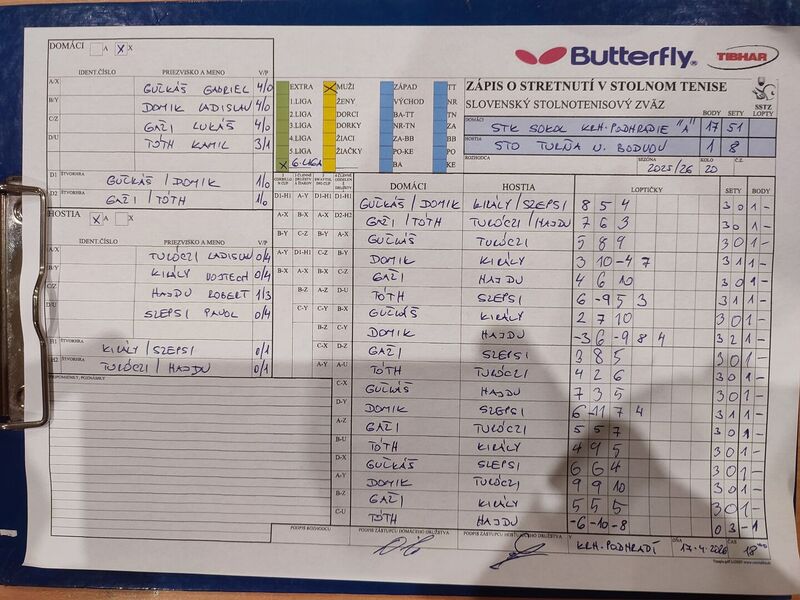 DOMÁCI A X X
IDENT.ČÍSLO PRIEZVISKO A MENO V/P
A/X GUČKÁŠ GABRIEL 4/0
B/Y DOMIK LADISLAV 4/0
C/Z GAŽI LUKÁŠ 4/0
D/U TÓTH KAMIL 3/1
D1 ŠTVORHRA GUČKÁŠ / DOMIK 1/0
D2 ŠTVORHRA GAŽI / TÓTH 1/0
HOSTIA X A X
IDENT.ČÍSLO PRIEZVISKO A MENO V/P
A/X TURÓCZI LADISLAV 0/4
B/Y KIRÁLY VOJTECH 0/4
C/Z HAJDU ROBERT 1/3
D/U SZEPSI PAVOL 0/4
H1 ŠTVORHRA KIRÁLY / SZEPSI 0/1
H2 ŠTVORHRA TURÓCZI / HAJDU 0/1
PRIPOMIENKY, POZNÁMKY
Butterfly TIBHAR
EXTRA X MUŽI ZÁPAD TT
1.LIGA ŽENY VÝCHOD NR
2.LIGA DORCI BA-TT TN
3.LIGA DORKY NR-TN ZA
4.LIGA ŽIACI ZA-BB BB
5.LIGA ŽIAČKY PO-KE PO
X 6-LIGA BA KE
ZÁPIS O STRETNUTÍ V STOLNOM TENISE
SLOVENSKÝ STOLNOTENISOVÝ ZVÄZ
SSTZ
BODY SETY LOPTY
DOMÁCI STK SOKOL KRH-PODHRADIE "A" 17 51
HOSTIA STO TURŇA N. BODVOU 1 8
ROZHODCA SEZÓNA 2025/26 KOLO 20 Č.Z.
DOMÁCI HOSTIA LOPTIČKY SETY BODY
D1-H1 A-Y D1-H1 D1-H1 GUČKÁŠ / DOMIK KIRÁLY / SZEPSI 8 5 4 3 0 1 -
A-X B-X A-X D2-H2 GAŽI / TÓTH TURÓCZI / HAJDU 7 6 3 3 0 1 -
B-Y C-Z B-Y A-X GUČKÁŠ TURÓCZI 5 8 9 3 0 1 -
DOMIK KIRÁLY 3 10 -4 7 3 1 1 -
GAŽI HAJDU 4 6 10 3 0 1 -
TÓTH SZEPSI 6 -9 5 3 3 1 1 -
GUČKÁŠ KIRÁLY 2 7 10 3 0 1 -
DOMIK HAJDU -3 6 -9 8 4 3 2 1 -
GAŽI SZEPSI 3 8 5 3 0 1 -
A-Y A-U TÓTH TURÓCZI 4 2 6 3 0 1 -
C-X GUČKÁŠ HAJDU 7 3 5 3 0 1 -
D-Y DOMIK SZEPSI 6 -11 7 4 3 1 1 -
A-Z GAŽI TURÓCZI 5 5 7 3 0 1 -
B-U TÓTH KIRÁLY 4 9 5 3 0 1 -
D-X GUČKÁŠ SZEPSI 6 6 4 3 0 1 -
A-Y DOMIK TURÓCZI 9 9 10 3 0 1 -
B-Z GAŽI KIRÁLY 5 5 5 3 0 1 -
C-U TÓTH HAJDU -6 -10 -8 0 3 - 1
PODPIS ROZHODCU PODPIS ZÁSTUPCU DOMÁCEHO DRUŽSTVA PODPIS ZÁSTUPCU HOSŤUJÚCEHO DRUŽSTVA V KRH-PODHRADÍ DŇA 17-4-2026 ČAS 18